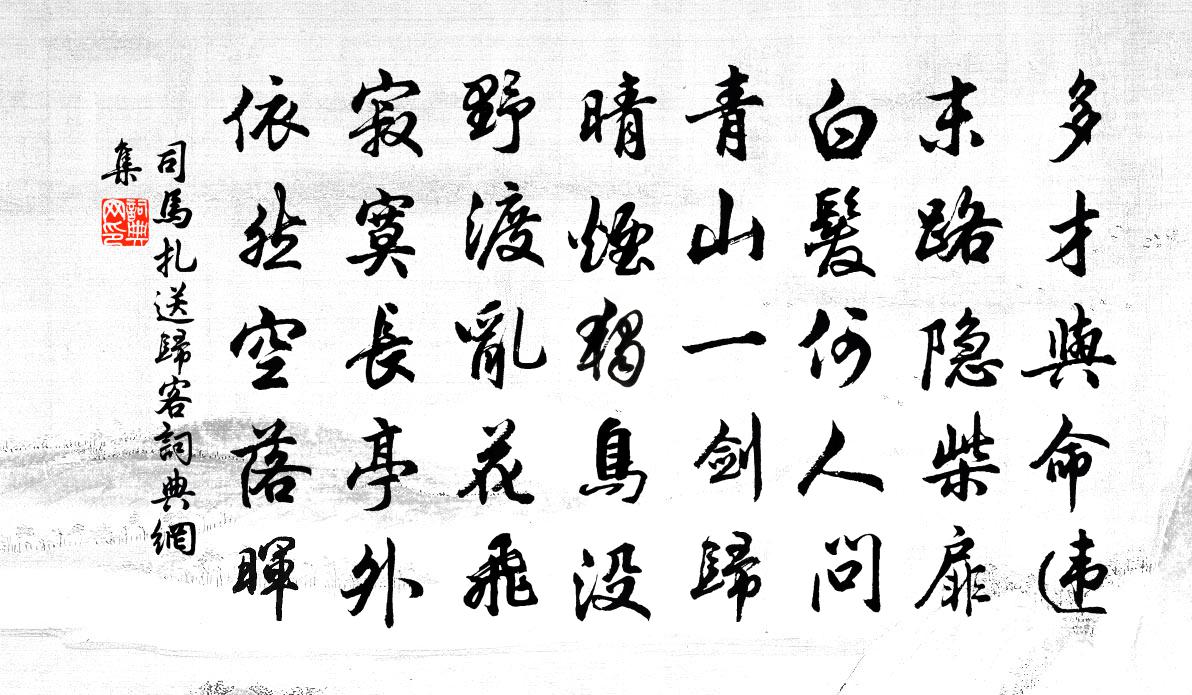 多才與命违
末路隐柴扉
白髮何人問
青山一剑歸
晴煙獨鳥没
野渡亂花飛
寂寞長亭外
依然空落暉
司馬扎送歸客詞典網
集
詞典
网印